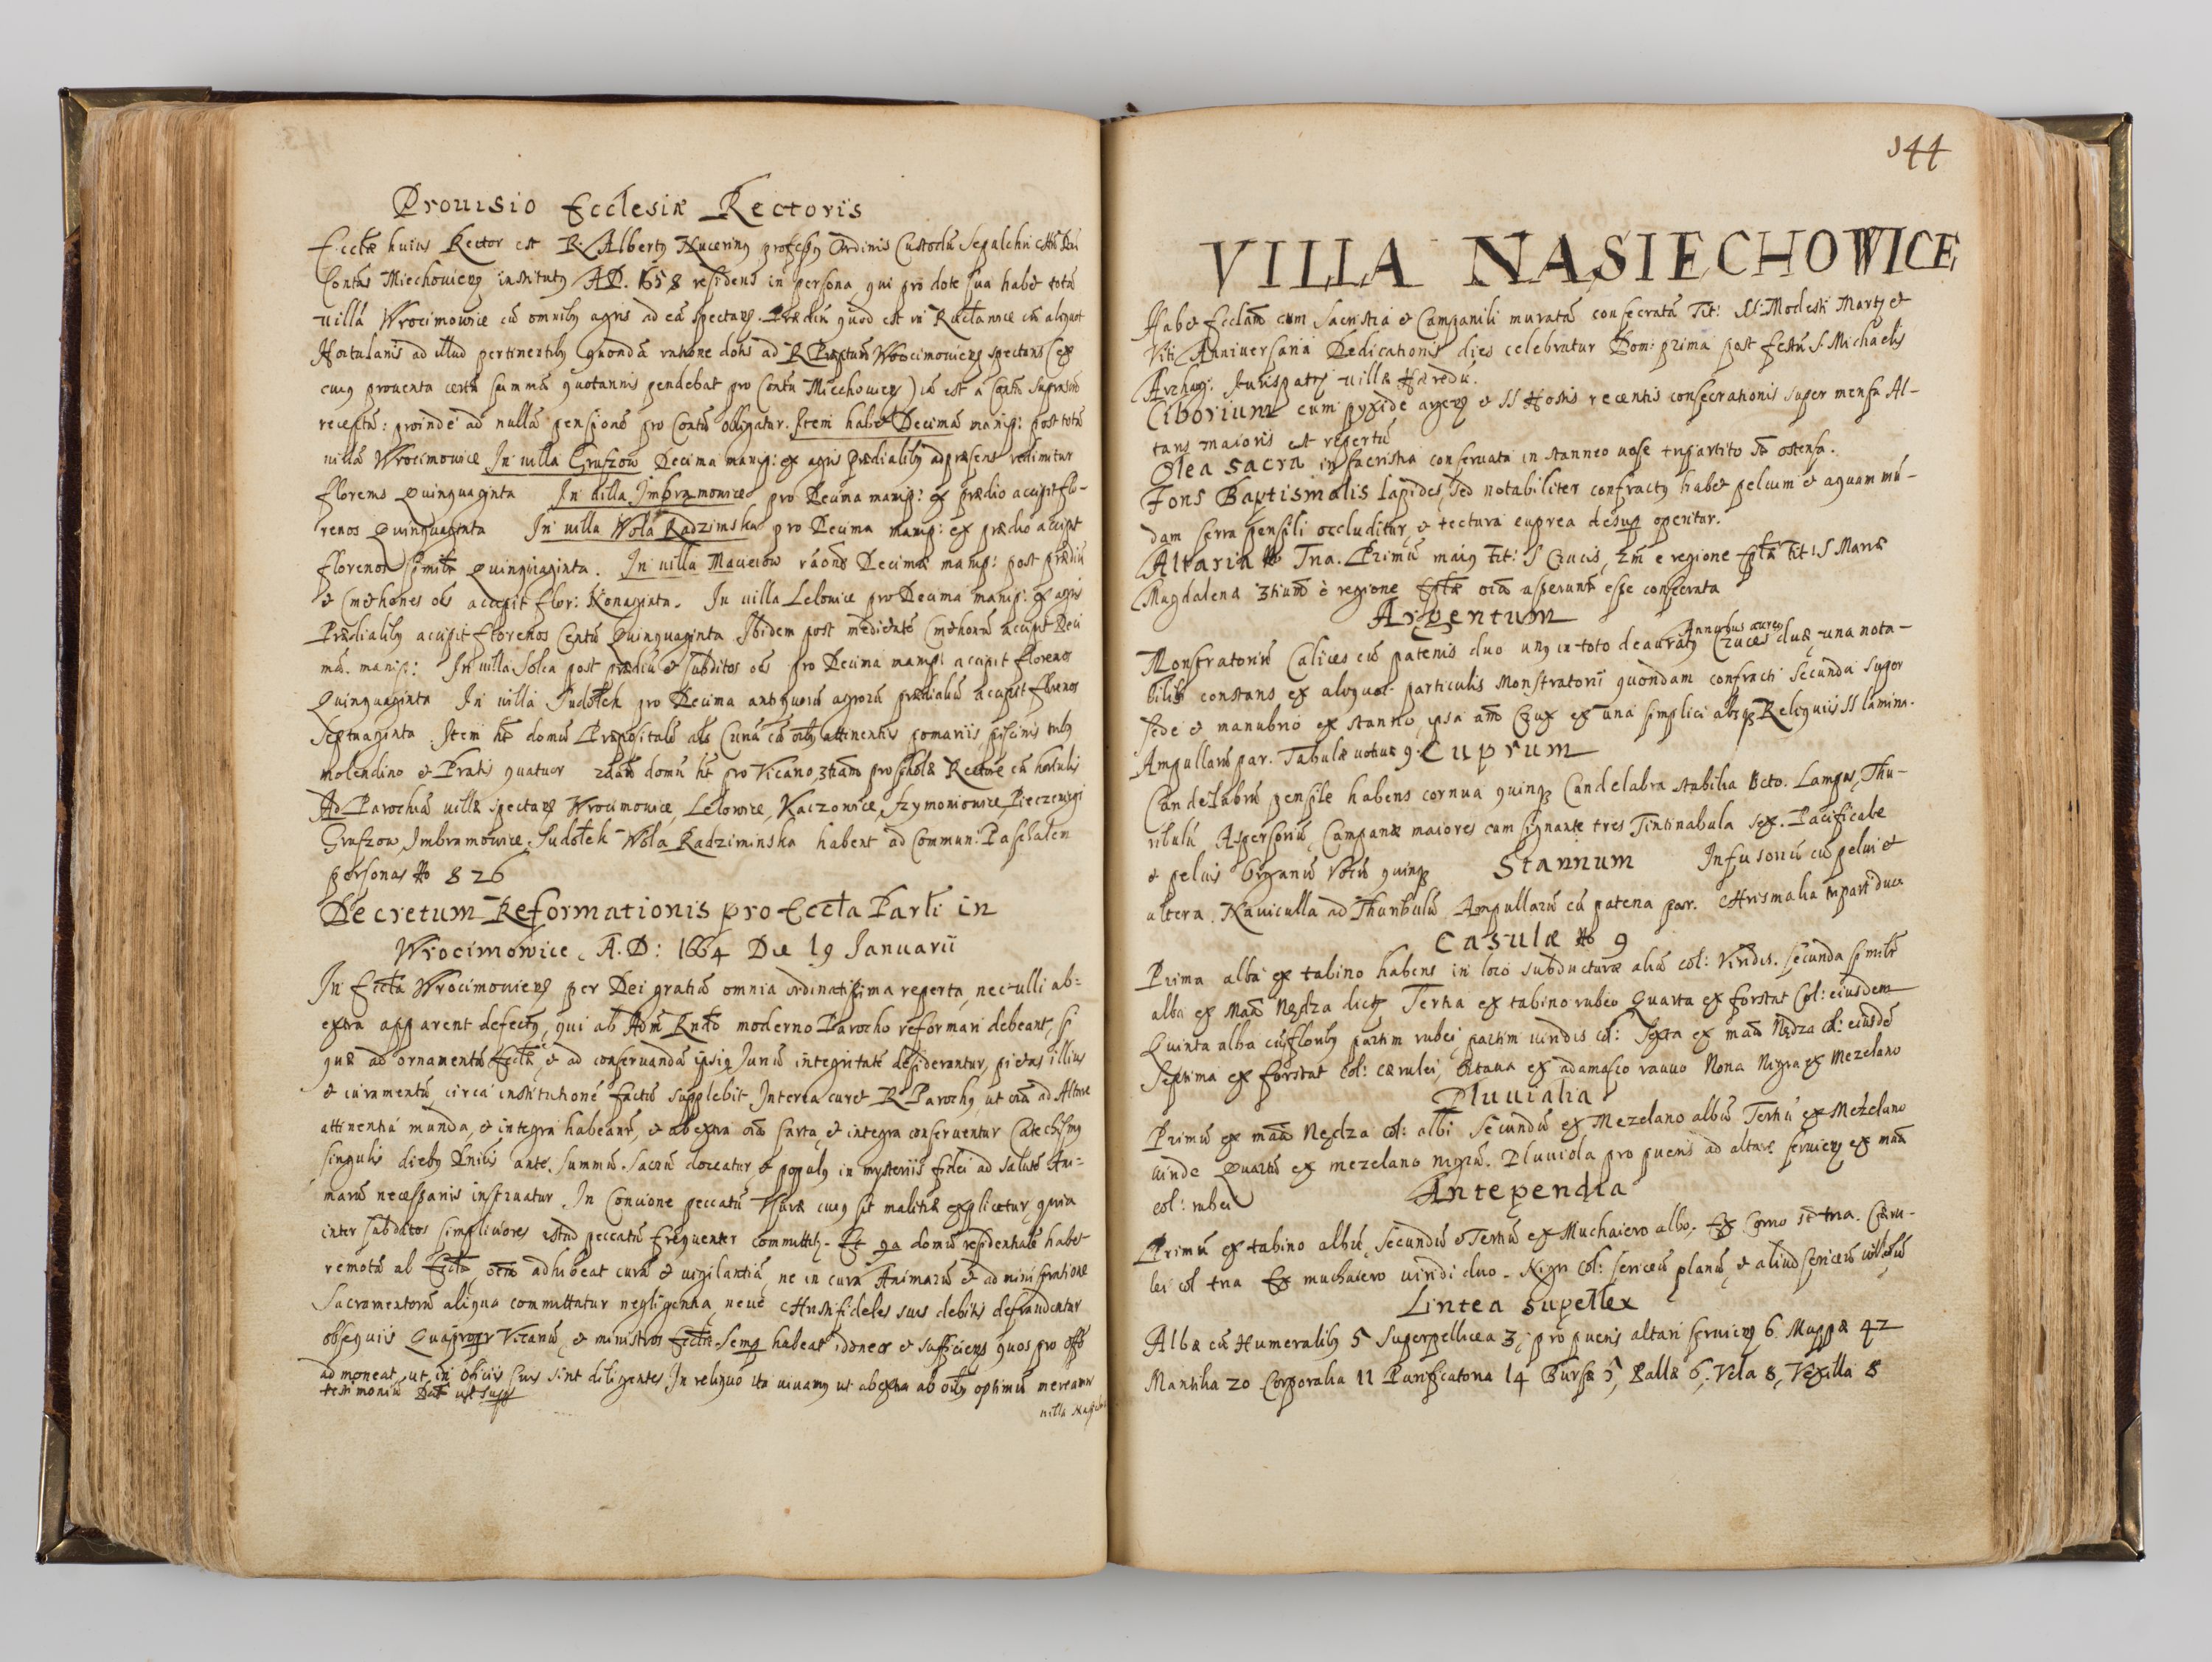 Prouisio Ecclesiæ Rectoris
Ecctæ huius Rector est R. Albertꝰ Nucerinꝰ professꝰ Ordinis Custodũ Sepulchri
Contus Miechouienꝭ institutꝰ A.D. 1658 residens in persona, qui pro dote sua habet totã
villã Wrocimowice cũ omnibꝰ agris ad eã spectanꝭ. Prædiũ quod est in Racławice cũ aliquot
Hortulanis ad illud pertinentibꝰ quondã ratione dotis ad R Præptum Wrocimouienꝭ spectans (ex
cuiꝰ prouentu certã summã quotannis pendebat pro Contu Miechouien) iã est a Contu suprascto
receptũ: proinde ad nullã pensionẽ pro Contu obligatur. Item habet Decimã manip: post totã
villã Wrocimowice In villa Gruszow Decima manip: ex agris prædialibꝰ ad præsens redimitur
florenis Quinquaginta In uilla Imbramowice pro Decima manip: ex prædio accipit flo-
renos Quinquaginta In uilla Wola Radzimska pro Decima manip: ex prædio accipit
florenos similr Quinquaginta. In uilla Macieiow rãone Decimæ manip: post prædiũ
et Cmethones oẽs accipit flor: Nonaginta. In uilla Lelowice pro Decima manip: ex agris
Prædialibꝰ accipit florenos Centũ Quinquaginta Ibidem post medietatẽ Cmethonũ accipit Deci
mã manip: In uilla Solca post prædiũ et subditos oẽs pro Decima manip: accipit florenos
Quinquaginta In uilla Sudołek pro Decima antiquorũ agrorũ prædialiũ accipit florenos
Septuaginta. Item ht domũ Præpositalẽ als Curiã cũ oibꝰ attinentiis pomariis piscinis tribꝰ
molendino et Pratis quatuor 2dam domũ ht pro Vicario, 3tiam pro scholæ Rectore cũ hortulis
Ad Parochiã uillæ spectanꝭ Wrocimowice, Lelowice, Kaczowice, Szymoniowice, Pieczenigi
Gruszow, Imbramowice, Sudołek Wola Radziminska habent ad Commun: Paschalem
personas No 826
Decretum Reformationis pro Eccta Parli in
Wrocimowice, A.D: 1664 Die 19 Januarii
In Eccta Wrocimouienꝭ per Dei gratiã omnia ordinatissima reperta, nec ulli ab-
extra apparent defectꝰ, qui ab Adm Rndo moderno Parocho reformari debeant, si
quæ ad ornamentũ Ecctæ, et ad conseruandã ipsiꝰ Juriũ integritatẽ desiderantur, pietas illius
et iuramentũ circa institutionẽ factũ supplebit Interea curet R Parochꝰ, ut oia ad Altare
attinentia munda, et integra habeantr, et ab extra oia sarta, et integra conseruentur Catechismꝰ
singulis diebꝰ Dnicis ante Summũ Sacrũ doceatur et populꝰ in mysteriis fidei ad salutẽ Ani-
marũ necessariis instruatur. In Concione peccatũ Vsuræ cuiꝰ sit malitiæ explicetur, quia
inter subditos simpliciores istud peccatũ frequenter committitꝰ. Et qa domũ residentialẽ habet
remotã ab Eccta oem adhibeat curã et uigilantiã ne in cura Animarũ et administratione
Sacramentorũ aliqua committatur negligentia, neue Christifideles suis debitis defraudentur
obsequiis Quapropr Vicariũ, et ministros Ecctæ semp habeat idoneos et sufficienꝭ quos pro offo
admoneat, ut in officiis suis sint diligentes In reliquo ita uiuamꝰ ut ab extra ab oibꝰ optimũ mereamur
testimoniũ Datt ust supr
uilla Nasiecho
144
VILLA NASIECHOWICE
Habet Ecclam cum Sacristia et Campanili muratã consecratã Tit: SS. Modesti Martꝭ et
Viti Anniuersaria Dedicationis dies celebratur Dom: prima post festũ S. Michaelis
Archang: Jurispatꝰ uillæ Hæredũ.
Ciborium cum pyxide argenꝭ et SS Hostiis recentis consecrationis super mensa Al-
taris maioris est repertũ
Olea sacra in sacristia conseruata in stanneo uase tripartito sũt ostensa.
Fons Baptismalis lapideꝰ, sed notabiliter confractꝰ habet peluim et aquam mũ-
dam serra pensili occluditur, et tectura cuprea desup operitur.
Altaria No Tria. Primũ maiꝰ tit: S Crucis, 2m e regione Epłæ Tit: S Mariæ
Magdalenæ 3tium e regione Eptæ oia asseruntr esse consecrata
Argentum
Annubus aureo
Monstratoriũ Calices cũ patenis duo unꝰ in toto deauratꝰ Cruces duæ, una nota-
bilis constans ex aliquot particulis Monstratorii quondam confracti secunda super
sede et manubrio ex stanno, ipsa aut Crux ex una simplici absqꝫ Reliquiis SS lamina.
Ampullarũ par. Tabulæ uotiuæ 9. Cuprum
Candelabrũ pensile habens cornua quinqꝫ Candelabra stabilia Octo. Lampas, Thu-
ribulũ Aspersoriũ, Campanæ maiores cum signante tres Tintinabula sex. Pacificale
et peluis Organũ Vocũ quinqꝫ Stannum Infusoriũ cũ pelui et
altera. Nauiculla ad Thuribulũ Ampullarũ cũ patena par. Chrismalia tripart duo
Casulæ No 9
Prima alba ex tabino habens in loco subducturæ aliũ col: Viridis. secunda similr
alba ex Maã Nędza dict Tertia ex tabino rubeo Quarta ex forstat Col: eiusdem
Quinta alba cũ floribꝰ partim rubei, partim uiridis col: Sexta ex maã Nędza col: eiusdẽ
Septima ex forstat col: cærulei, Octaua ex adamasco rauuo Nona Nigra ex Mezelano
Pluuialia
Primũ ex maã Nędza col: albi Secundũ ex Mezelano albũ Tertiũ ex Mezelano
uiride Quartũ ex mezelano nigrũ. Pluuiola pro pueris ad altare seruienꝭ ex maã
col: rubei
Antependia
Primũ ex tabino albũ, Secundũ et Tertiũ ex Muchaiero albo, Ex Corio it tria. Cæru-
lei col tria Ex muchaiero uiridi duo. Nigri Col: sericeũ planũ, et aliud sericeũ
Lintea supellex
Albæ cũ Humeralibꝰ 5 Superpellicea 3, pro pueris altari seruienꝭ 6 Mappæ 42
Mantilia 20 Corporalia 11 Purificatoria 14 Bursæ 5, Pallæ 6, Vela 8, Vexilla 8